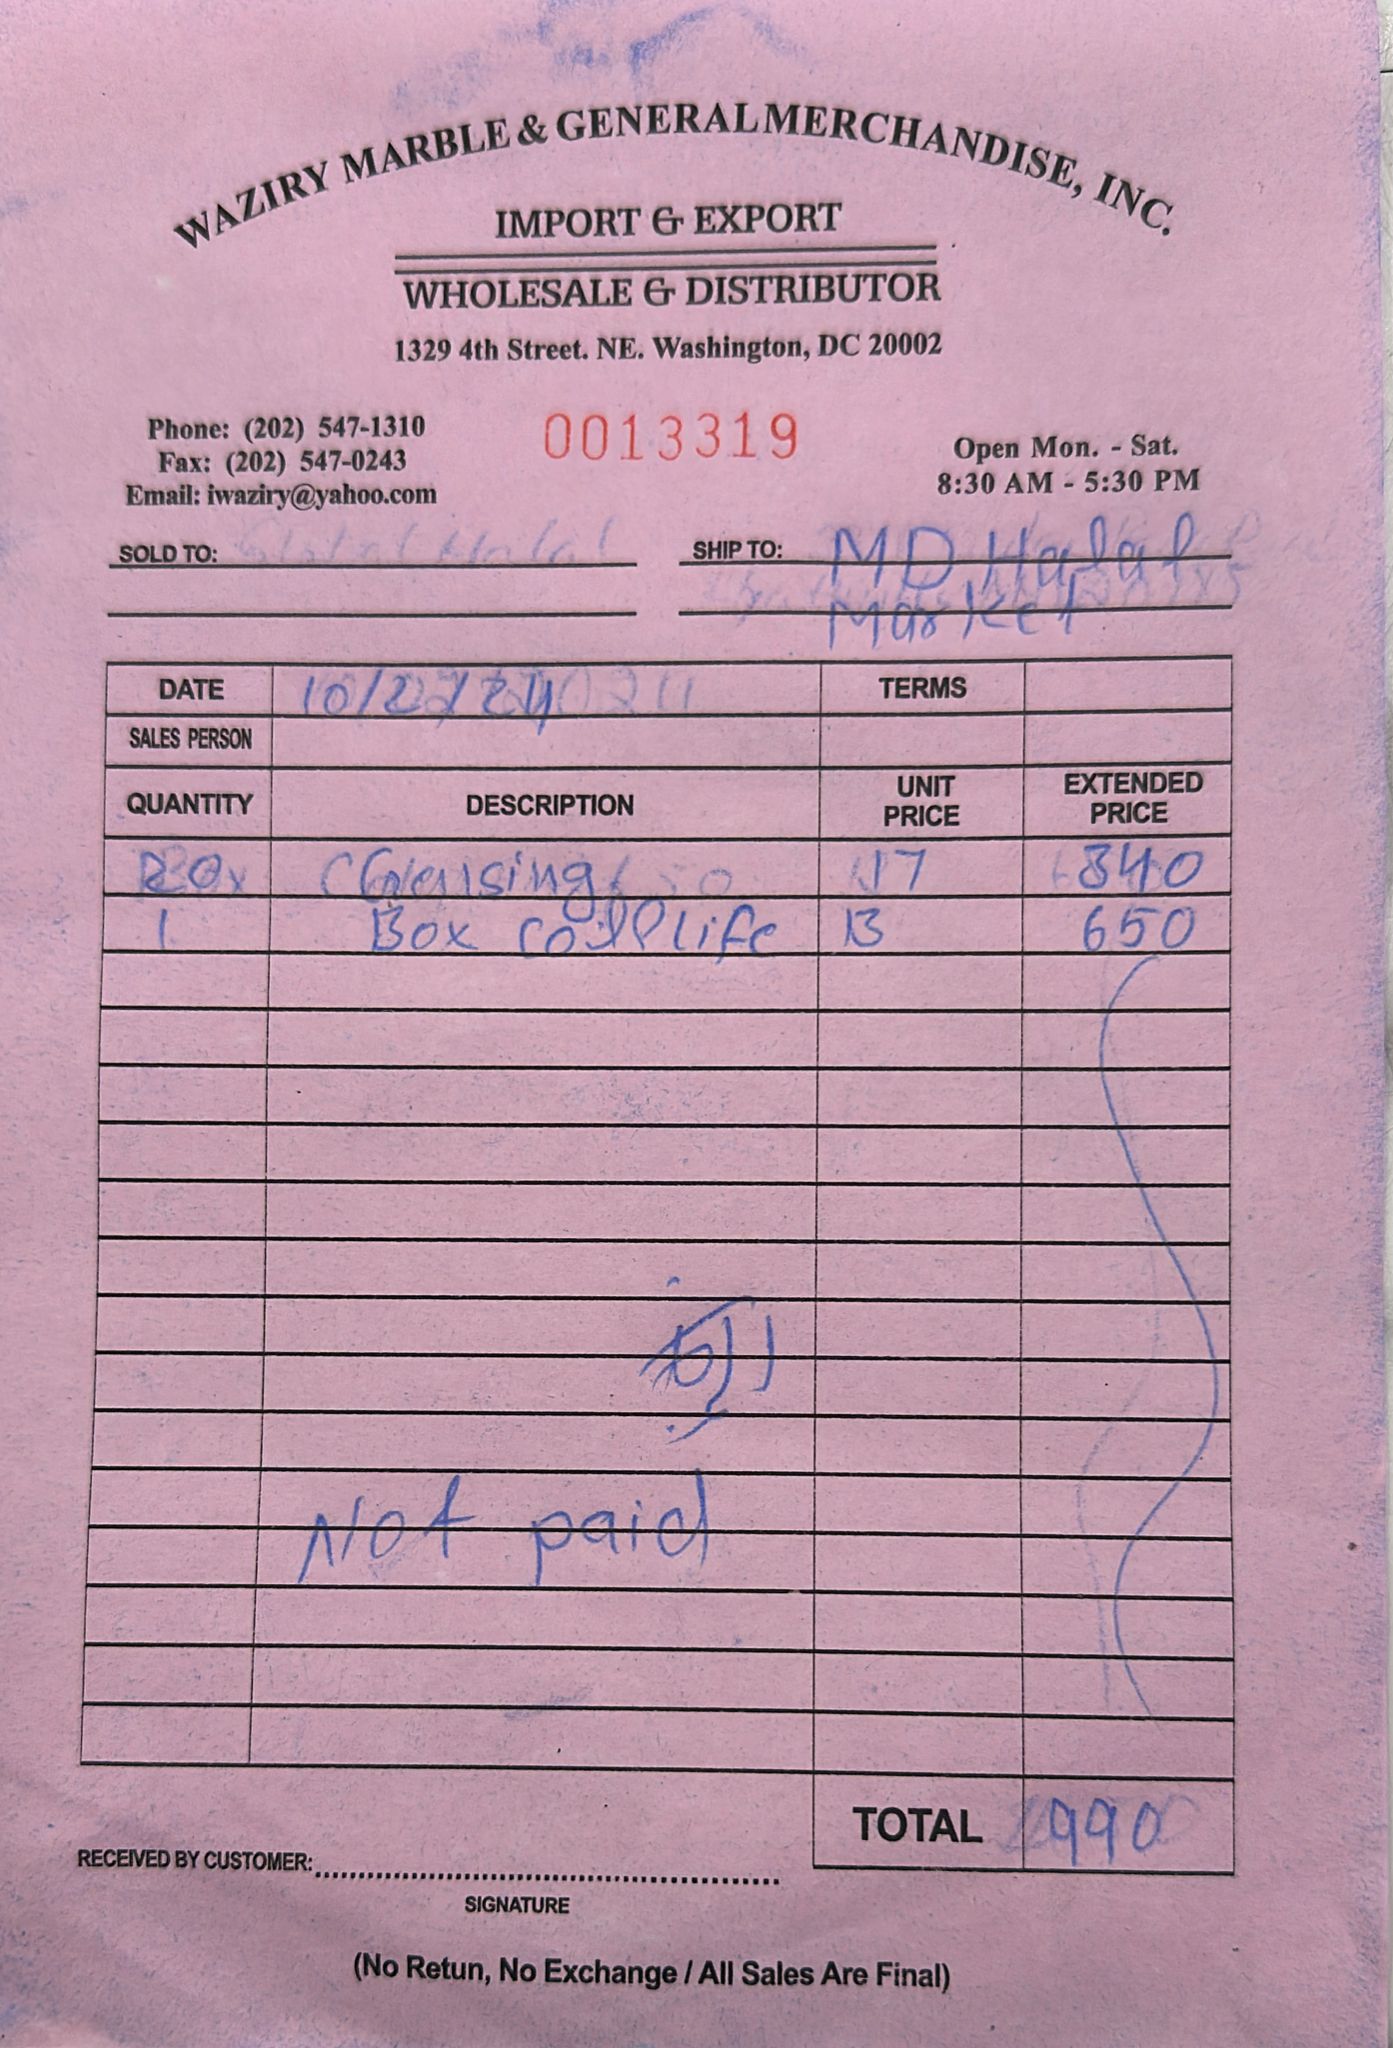 WAZIRY MARBLE & GENERAL MERCHANDISE, INC.
IMPORT & EXPORT
WHOLESALE & DISTRIBUTOR
1329 4th Street. NE. Washington, DC 20002
Phone: (202) 547-1310
Fax: (202) 547-0243
Email: iwaziry@yahoo.com
0013319
Open Mon. - Sat.
8:30 AM - 5:30 PM
SOLD TO:
SHIP TO: MD Halal
Market
DATE 10/2/24 TERMS
SALES PERSON
QUANTITY DESCRIPTION UNIT PRICE EXTENDED PRICE
17 340
1 Box life 13 650
Not paid
TOTAL 990
RECEIVED BY CUSTOMER:
SIGNATURE
(No Retun, No Exchange / All Sales Are Final)